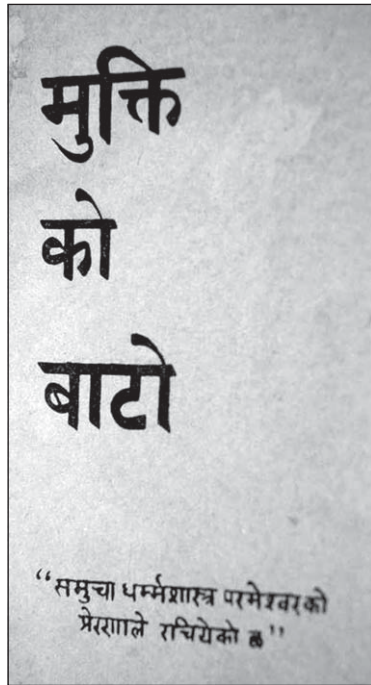 मुक्ति
को
बाटो
“समुचा धर्म्मशास्त्र परमेश्वरको
प्रेरणाले रचियेको छ”